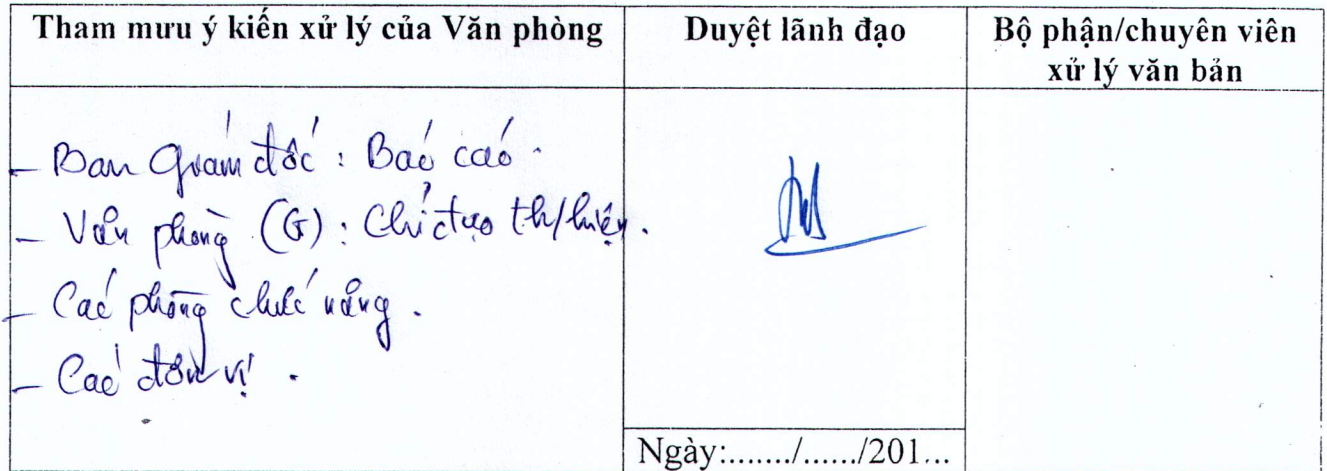 Tham mưu ý kiến xử lý của Văn phòng
Duyệt lãnh đạo
Bộ phận/chuyên viên
xử lý văn bản
- Ban Giám đốc : Báo cáo.
- Văn phòng (G) : Chỉ đạo th/hiện.
- Các phòng chức năng.
- Các đơn vị.
Ngày:......./....../201...